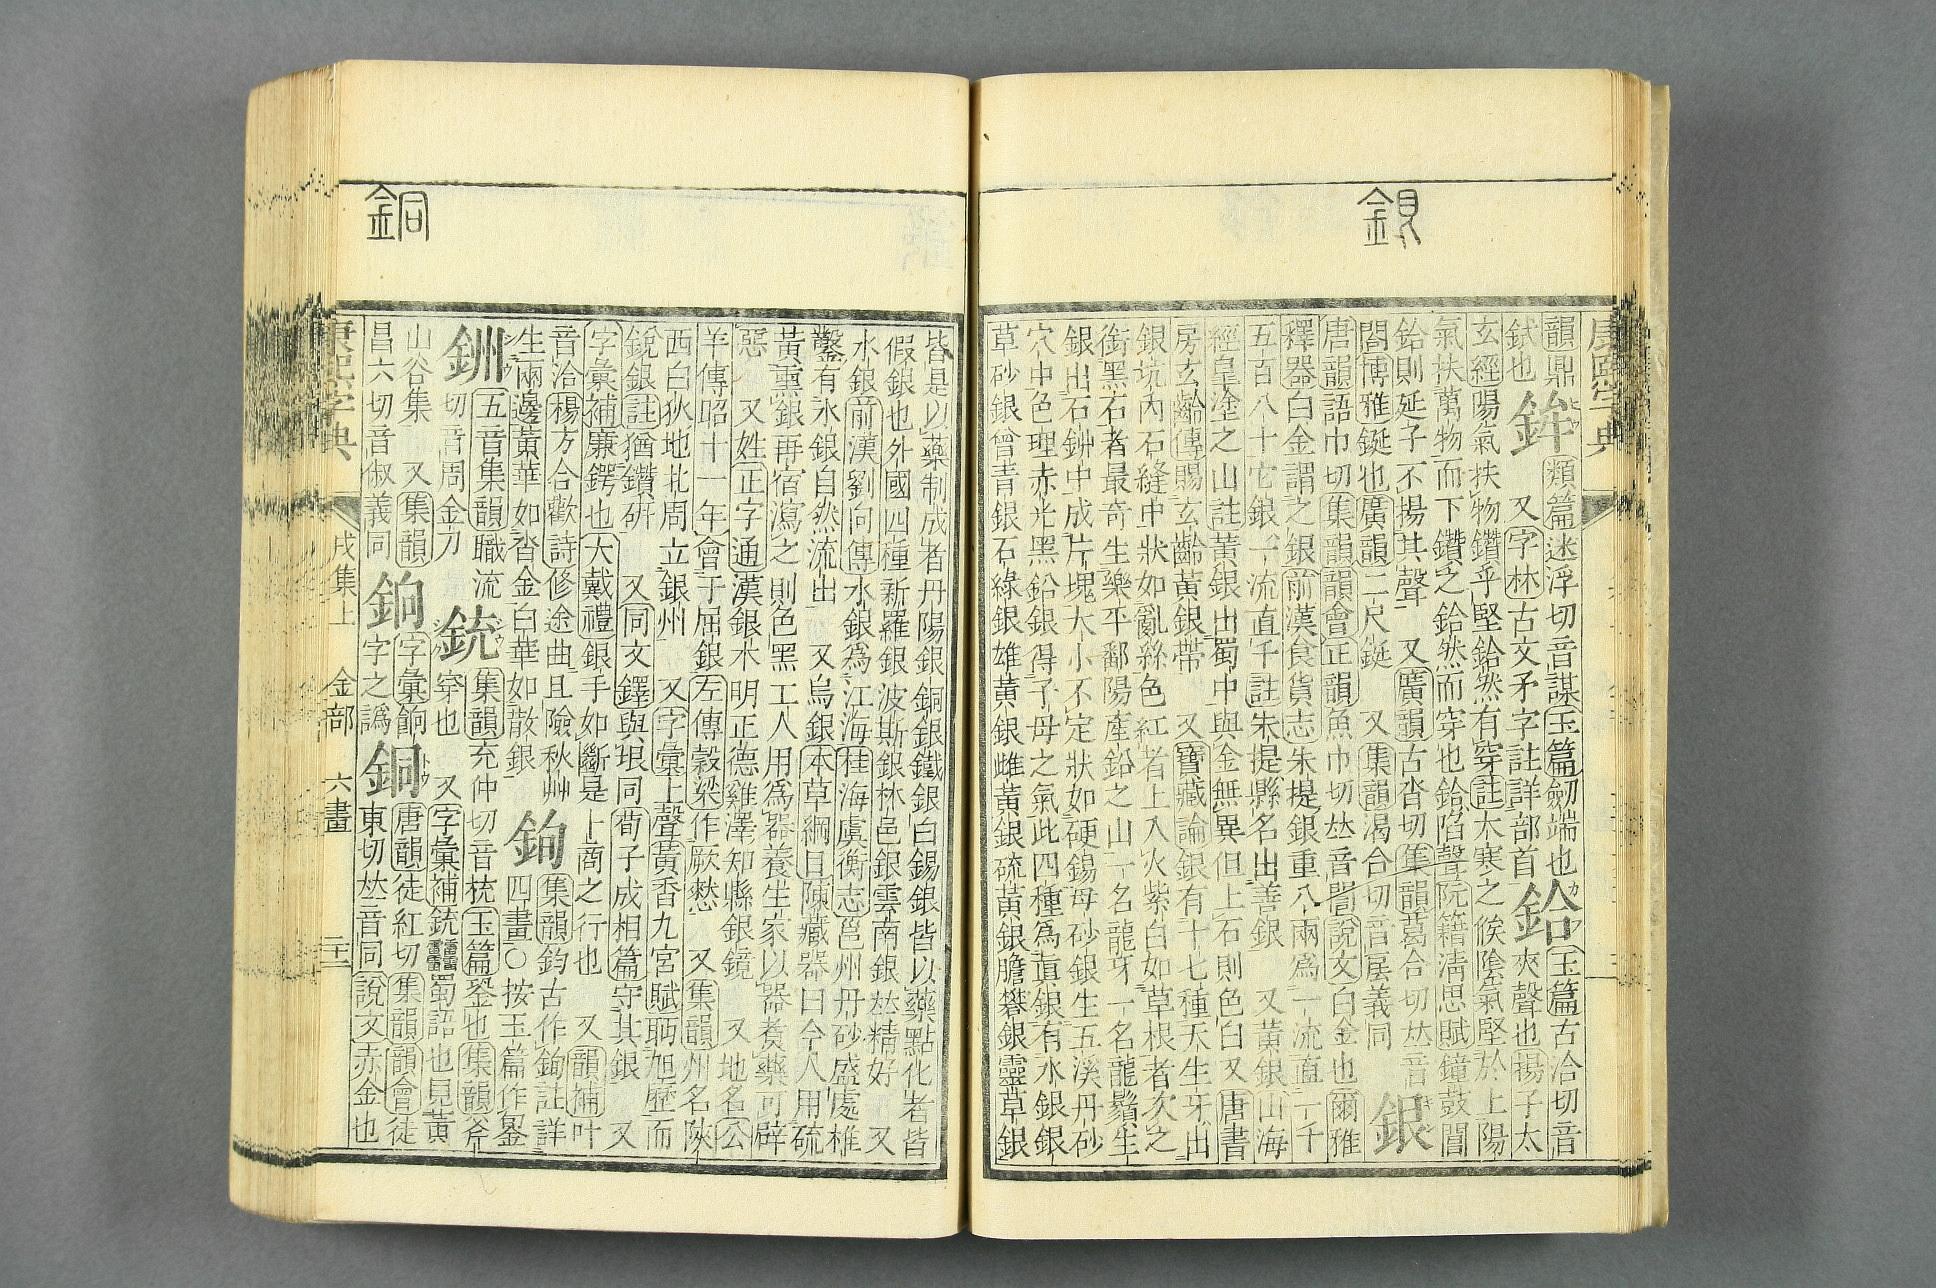 銀
康熙字典
韻鼎鉟 類篇迷浮切音謀玉篇劒端也 玉篇古洽切音
鉽也 又字林古文矛字註詳部首 鉿 夾聲也揚子太
玄經陽氣扶物鑽乎堅鉿然有穿註大寒之候陰氣堅於上陽
氣扶萬物而下鑽之鉿然而穿也鉿陷聲阮籍淸思賦鐘鼓閶
鉿則延子不揚其聲 又廣韻古沓切集韻葛合切𠀤音
閤博雅鋌也廣韻二尺鋌 又集韻渴合切音㕎義同 銀
唐韻語巾切集韻韻會正韻魚巾切𠀤音誾說文白金也爾雅
釋器白金謂之銀前漢食貨志朱提銀重八兩爲一流直一千
五百八十它銀一流直千註朱提縣名出善銀 又黃銀山海
經皇塗之山註黃銀出蜀中與金無異但上石則色白又唐書
房玄齡傳賜玄齡黃銀帶 又寶藏論銀有十七種天生牙出
銀坑內石縫中狀如亂絲色紅者上入火紫白如草根者次之
銜黑石者最奇生樂平鄱陽產鉛之山一名龍牙一名龍鬚生
銀出石鉚中成片塊大小不定狀如硬錫母砂銀生五溪丹砂
穴中色理赤光黑鉛銀得子母之氣此四種爲眞銀有水銀銀
草砂銀曾靑銀石綠銀雄黃銀雌黃銀硫黃銀膽礬銀靈草銀
銅
皆是以藥制成者丹陽銀銅銀鐵銀白錫銀皆以藥點化者皆
假銀也外國四種新羅銀波斯銀林邑銀雲南銀𠀤精好 又
水銀前漢劉向傳水銀爲江海桂海虞衡志邕州丹砂盛處椎
鑿有水銀自然流出 又烏銀本草綱目陳藏器曰今人用硫
黃熏銀再宿瀉之則色黑工人用爲器養生家以器煑藥可辟
惡 又姓正字通漢銀木明正德雞澤知縣銀鏡 又地名公
羊傳昭十一年會于屈銀左傳穀梁作厥憖 又集韻州名陝
西白狄地北周立銀州 又字彙上聲黃香九宮賦耴旭歷而
銳銀註猶鑽硏 又同文鐸與垠同荀子成相篇守其銀 又
字彙補廉鍔也大戴禮銀手如斷是上商之行也 又韻補叶
音洽楊方合歡詩修途曲且險秋艸 集韻鈞古作銁註詳
生兩邊黃華如沓金白華如散銀 銁 四畫○按玉篇作鋆
銂 五音集韻職流 集韻充仲切音㧡玉篇銎也集韻斧
切音周金刀 銃 穿也 又字彙補銃䨻蜀語也見黃
山谷集 又集韻 字彙餉 唐韻徒紅切集韻韻會徒
昌六切音俶義同 銄 字之譌 銅 東切𠀤音同說文赤金也
康熙字典 戌集上 金部 六畫 二十一